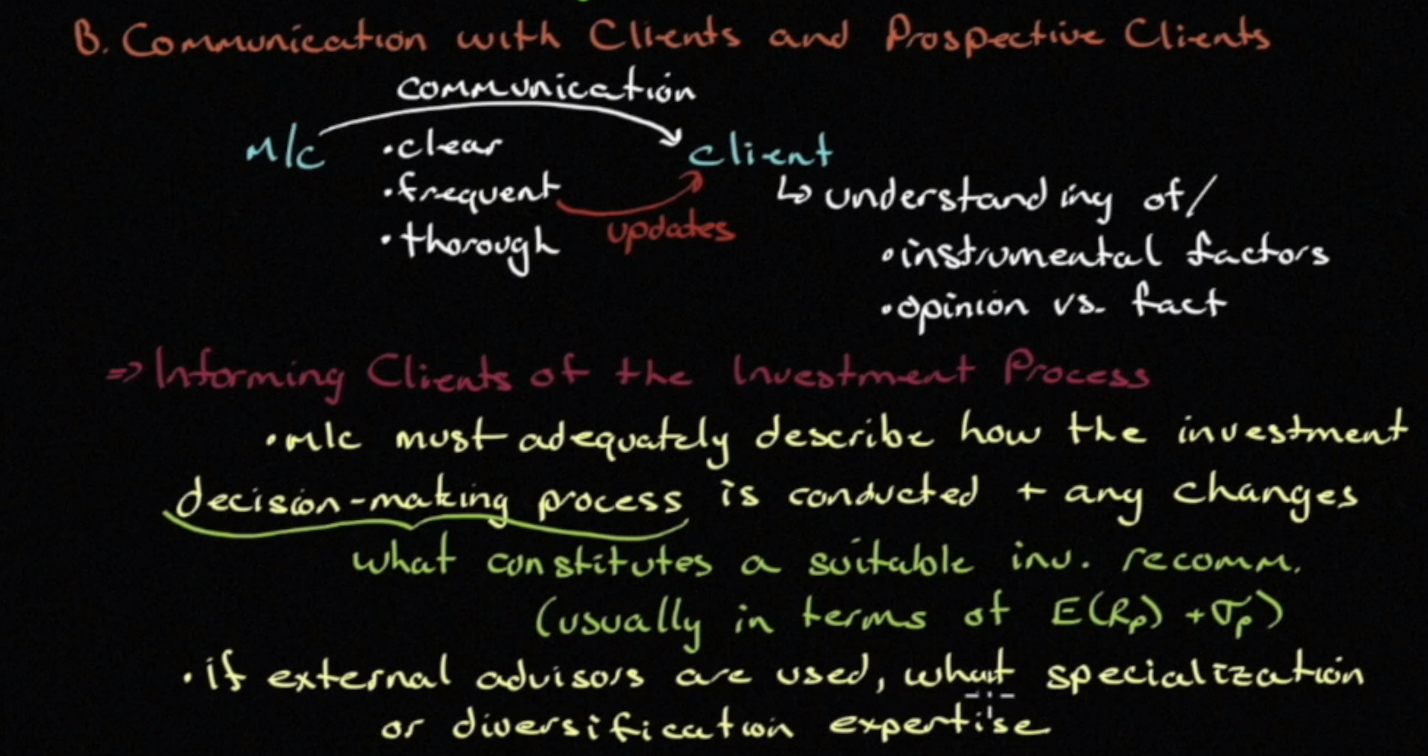 B. Communication with Clients and Prospective Clients
communication
M/C → client
• clear
• frequent
updates
• thorough
↳ understanding of/
• instrumental factors
• opinion vs. fact
⇒ Informing Clients of the Investment Process
• M/C must adequately describe how the investment
decision-making process is conducted + any changes
what constitutes a suitable inv. recomm.
(usually in terms of E(Rp) + σp)
• if external advisors are used, what specialization
or diversification expertise